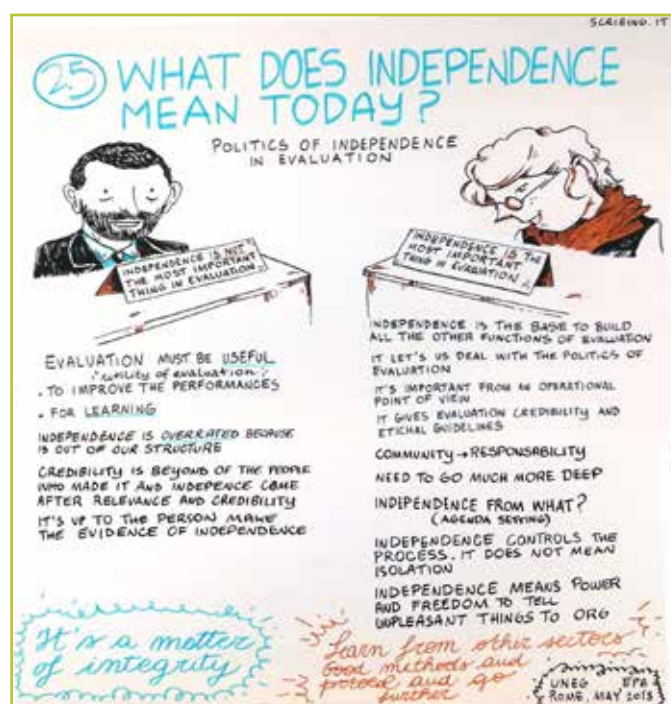 SCRIBING.IT
2.5 WHAT DOES INDEPENDENCE
MEAN TODAY?
POLITICS OF INDEPENDENCE
IN EVALUATION
INDEPENDENCE IS NOT
THE MOST IMPORTANT
THING IN EVALUATION
EVALUATION MUST BE USEFUL
"utility of evaluation"
• TO IMPROVE THE PERFORMANCES
• FOR LEARNING
INDEPENDENCE IS OVERRATED BECAUSE
IS OUT OF OUR STRUCTURE
CREDIBILITY IS BEYOND OF THE PEOPLE
WHO MADE IT AND INDEPENCE COME
AFTER RELEVANCE AND CREDIBILITY
IT'S UP TO THE PERSON MAKE
THE EVIDENCE OF INDEPENDENCE
It's a matter
of integrity
INDEPENDENCE IS THE
MOST IMPORTANT
THING IN EVALUATION
INDEPENDENCE IS THE BASE TO BUILD
ALL THE OTHER FUNCTIONS OF EVALUATION
IT LET'S US DEAL WITH THE POLITICS OF
EVALUATION
IT'S IMPORTANT FROM AN OPERATIONAL
POINT OF VIEW
IT GIVES EVALUATION CREDIBILITY AND
ETICHAL GUIDELINES
COMMUNITY → RESPONSABILITY
NEED TO GO MUCH MORE DEEP
INDEPENDENCE FROM WHAT?
(AGENDA SETTING)
INDEPENDENCE CONTROLS THE
PROCESS. IT DOES NOT MEAN
ISOLATION
INDEPENDENCE MEANS POWER
AND FREEDOM TO TELL
UNPLEASANT THINGS TO ORG
Learn from other sectors
Good methods and
and go
further
UNEG EPE
ROME, MAY 2018